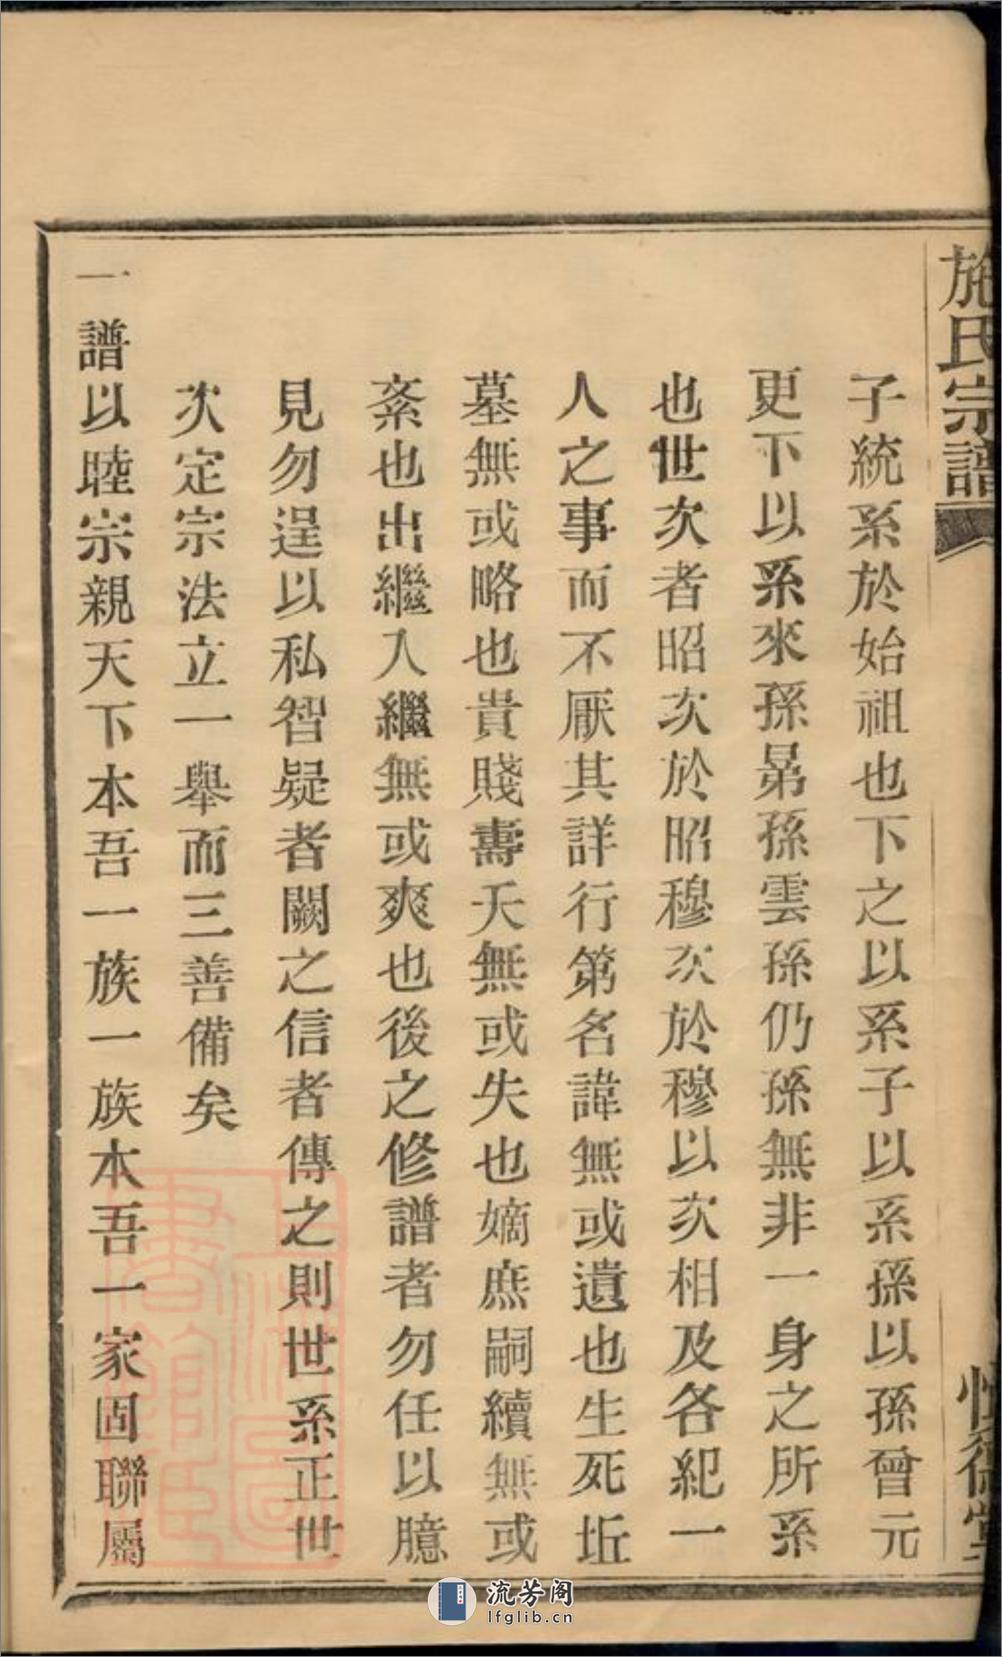 施氏宗譜
子統系於始祖也下之以系子以系孫以孫曾元
更下以系來孫晜孫雲孫仍孫無非一身之所系
也世次者昭次於昭穆次於穆以次相及各紀一
人之事而不厭其詳行第名諱無或遺也生死坵
墓無或略也貴賤壽夭無或失也嫡庶嗣續無或
紊也出繼入繼無或爽也後之修譜者勿任以臆
見勿逞以私智疑者闕之信者傳之則世系正世
次定宗法立一舉而三善備矣
一譜以睦宗親天下本吾一族一族本吾一家固聯屬
流芳阁
lfglib.cn